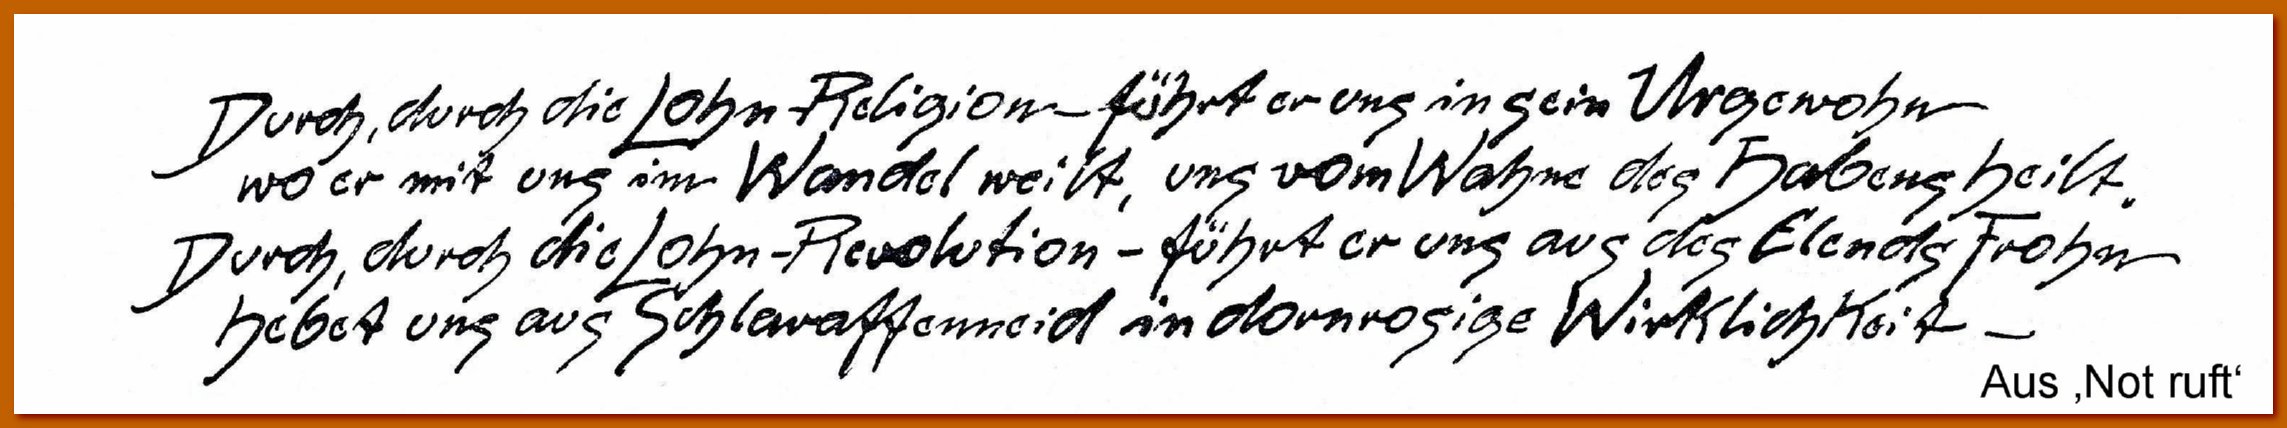 Durch, durch die Lohn-Religion – führt er uns in sein Urgewohn
wo er mit uns im Wandel weilt, uns vom Wahne des Habens heilt.
Durch, durch die Lohn-Revolution – führt er uns aus des Elends Frohn
hebet uns aus Schlawaffenneid in dornrosige Wirklichkeit –
Aus ‚Not ruft‘